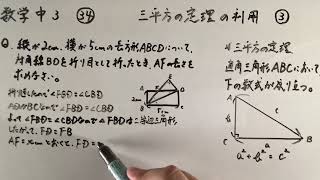 数学中3 ㉞ 三平方の定理の利用 ③
Q. 縦が2cm、横が5cmの長方形ABCDについて、
対角線BDを折り目として折ったとき、AFの長さを
求めなさい。
折り返したので∠FBD=∠CBD
AD//BCなので∠FDB=∠CBD
よって∠FBD=∠FDBなので△FBDは二等辺三角形
したがって、FD=FB
AF=xcmとおくと、FD=
三平方の定理
直角三角形ABCにおいて
下の数式が成り立つ。
A
B
C
a
b
c
a²+b²=c²